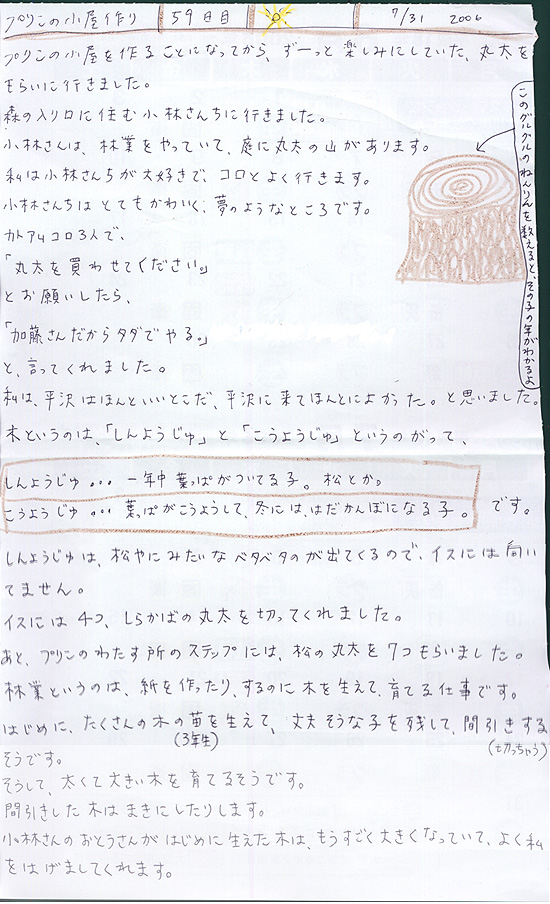 プリンの小屋作り 59日目 7/31 2006
プリンの小屋を作ることになってから、ずーっと楽しみにしていた、丸太を
もらいに行きました。
森の入り口に住む小林さんちに行きました。
小林さんは、林業をやっていて、庭に丸太の山があります。
私は小林さんちが大好きで、コロとよく行きます。
小林さんちはとてもかわいく、夢のようなところです。
カトアリコロ3人で、
「丸太を買わせてください。」
とお願いしたら、
「加藤さんだからタダでやる。」
と、言ってくれました。
このグルグルのねんりんを数えると、その子の年がわかるよ
私は、平沢はほんといいとこだ、平沢に来てほんとによかった。と思いました。
木というのは、「しんようじゅ」と「こうようじゅ」というのがって、
しんようじゅ... 一年中葉っぱがついてる子。松とか。
こうようじゅ... 葉っぱがこうようして、冬には、はだかんぼになる子。 です。
しんようじゅは、松やにみたいなベタベタのが出てくるので、イスには向い
てません。
イスには4つ、しらかばの丸太を切ってくれました。
あと、プリンのわたす所のステップには、松の丸太を7つもらいました。
林業というのは、紙を作ったり、するのに木を生えて、育てる仕事です。
はじめに、たくさんの木の苗を生えて、丈夫そうな子を残して、間引きする
(3年生) (切っちゃう)
そうです。
そうして、太くて大きい木を育てるそうです。
間引きした木はまきにしたりします。
小林さんのおとうさんがはじめに生えた木は、もうすごく大きくなっていて、よく私
をはげましてくれます。